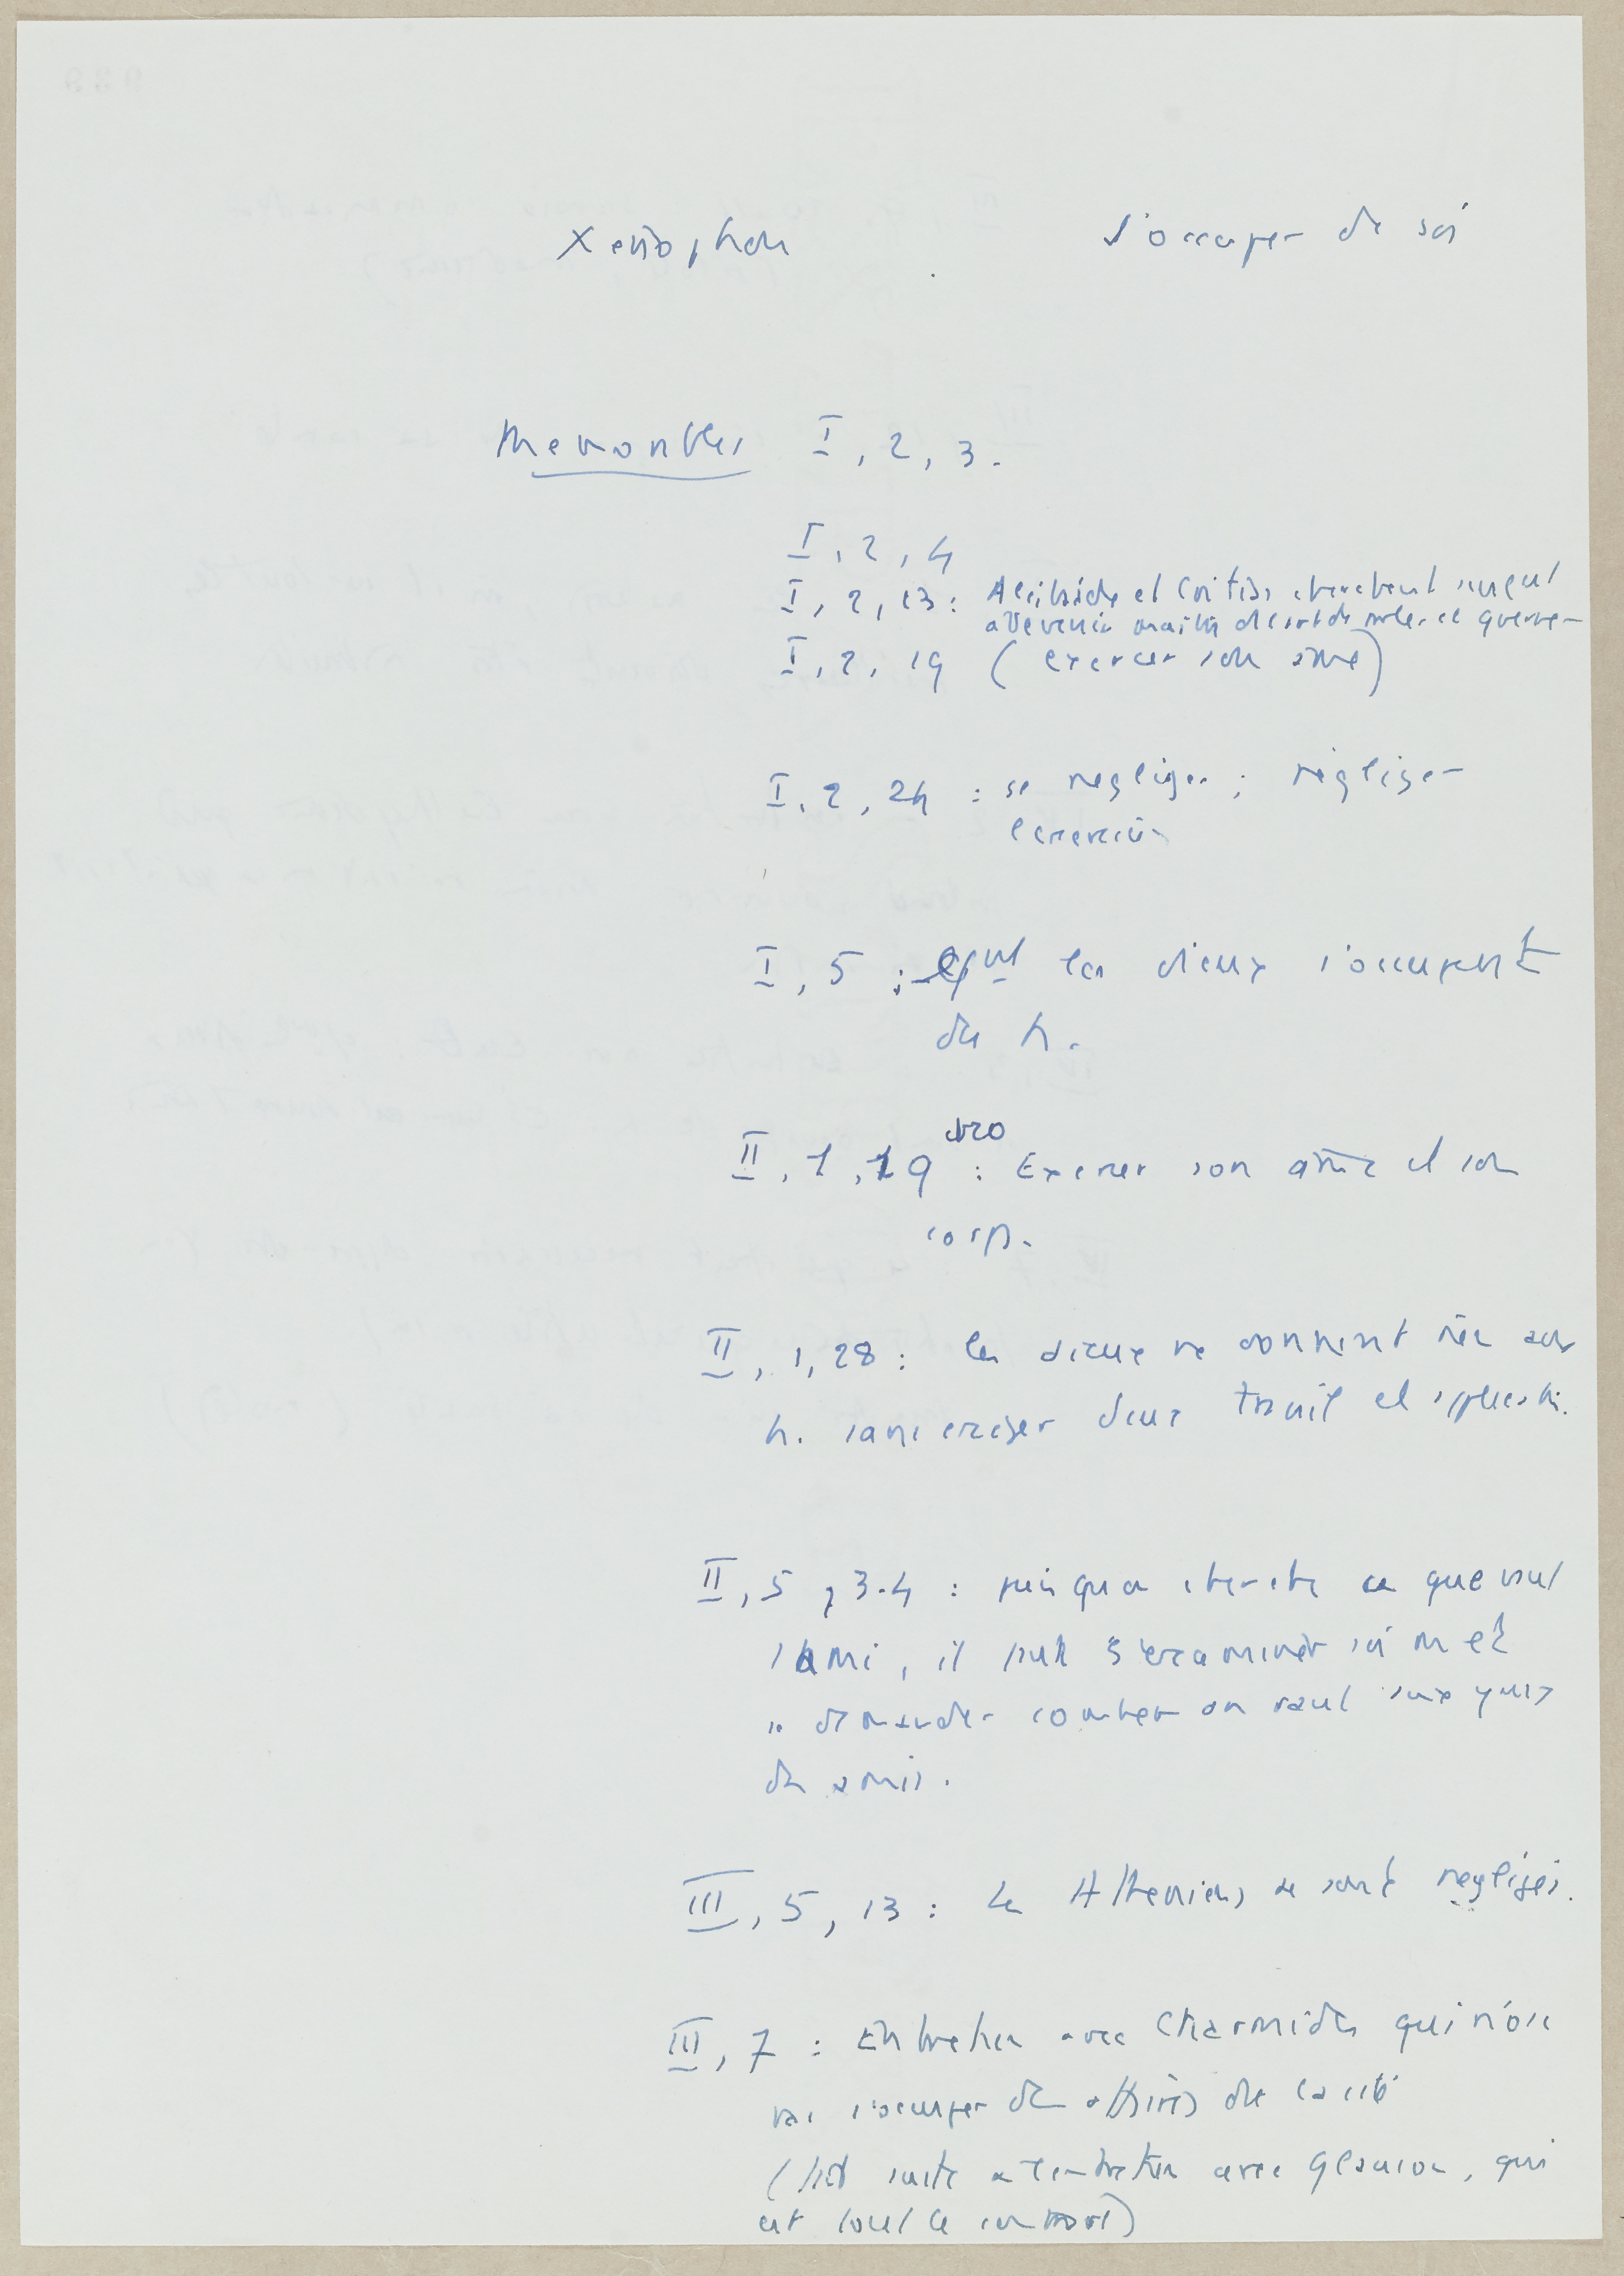 Xenophon s'occuper de soi
Memorables I, 2, 3.
I, 2, 4
I, 2, 13 : Alcibiade et Critias cherchent
I, 2, 19 (exercer son ame)
I, 2, 24 : se negliger ; negliger
l'exercice
I, 5 : les dieux s'occupent
des h.
II, 1, 19 20 : Exercer son ame et son
corps.
II, 1, 28 : les dieux ne donnent rien aux
h. sans exiger d'eux travail et applicatn.
II, 5, 3-4 : puisqu'on cherche ce que vaut
1 ami, il faut s'examiner soi m et
se demander combien on vaut aux yeux
des amis.
III, 5, 13 : Les Atheniens se sont negligés.
III, 7 : Entretien avec Charmides qui n'ose
pas s'occuper des affaires de la cité
(fait suite a l'entretien avec Glaucon, qui
est tout le contraire)